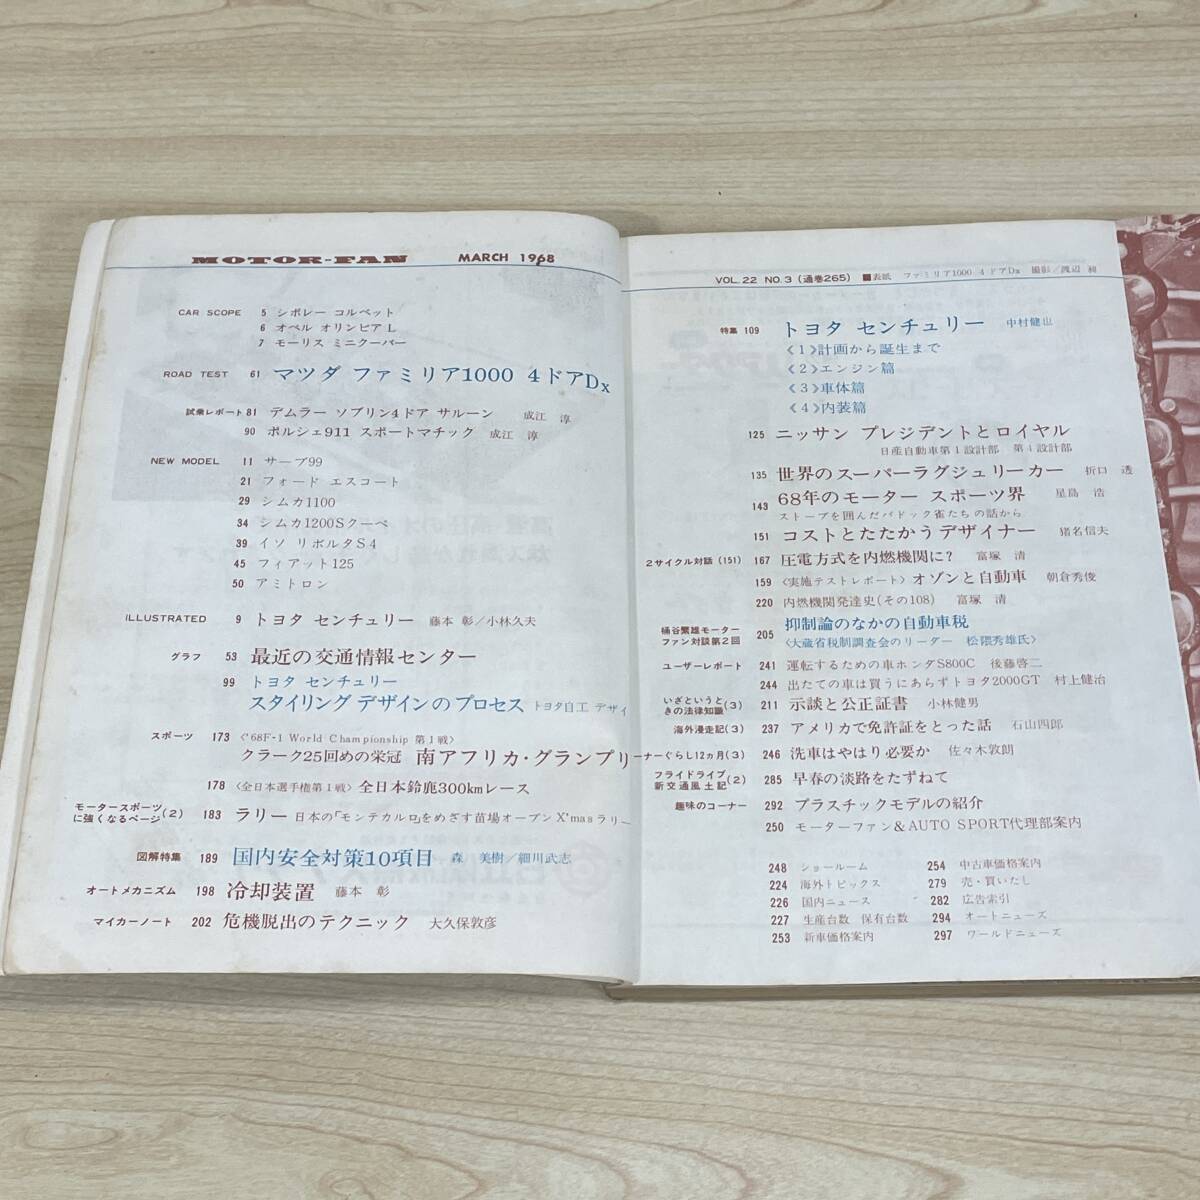 MOTOR-FAN MARCH 1968
CAR SCOPE 5 シボレー コルベット
6 オペル オリンピア L
7 モーリス ミニクーパー
ROAD TEST 61 マツダ ファミリア1000 4ドアDx
試乗レポート 81 デムラー ソブリン4ドア サルーン 成江 淳
90 ポルシェ911 スポートマチック 成江 淳
NEW MODEL 11 サーブ99
21 フォード エスコート
29 シムカ1100
34 シムカ1200Sクーペ
39 イソ リボルタS4
45 フィアット125
50 アミトロン
ILLUSTRATED 9 トヨタ センチュリー 藤本 彰/小林久夫
グラフ 53 最近の交通情報センター
99 トヨタ センチュリー
スタイリング デザインのプロセス トヨタ自工 デザイ
スポーツ 173 〈'68F-1 World Championship 第1戦〉
クラーク25回めの栄冠 南アフリカ・グランプリ
178 〈全日本選手権第1戦〉全日本鈴鹿300kmレース
モータースポーツに強くなるページ(2) 183 ラリー 日本の「モンテカルロ」をめざす苗場オープンX'masラリー
図解特集 189 国内安全対策10項目 森 美樹/細川武志
オートメカニズム 198 冷却装置 藤本 彰
マイカーノート 202 危機脱出のテクニック 大久保敦彦
VOL.22 NO.3 (通巻265) ■表紙 ファミリア1000 4ドアDx 撮影/渡辺
特集 109 トヨタ センチュリー 中村健也
〈1〉計画から誕生まで
〈2〉エンジン篇
〈3〉車体篇
〈4〉内装篇
125 ニッサン プレジデントとロイヤル
日産自動車第1設計部 第4設計部
135 世界のスーパーラグジュリーカー 折口 透
143 68年のモーター スポーツ界 星島 浩
ストーブを囲んだパドック雀たちの話から
151 コストとたたかうデザイナー 猪名信夫
2サイクル対話(151) 167 圧電方式を内燃機関に? 富塚 清
159 〈実施テストレポート〉オゾンと自動車 朝倉秀俊
220 内燃機関発達史(その108) 富塚 清
桶谷繁雄モーターファン対談第2回 205 抑制論のなかの自動車税
〈大蔵省税制調査会のリーダー 松隈秀雄氏〉
ユーザーレポート 241 運転するための車ホンダS800C 後藤啓二
244 出たての車は買うにあらずトヨタ2000GT 村上健治
いざというときの法律知識(3) 211 示談と公正証書 小林健男
海外漫走記(3) 237 アメリカで免許証をとった話 石山四郎
ーナーぐらし12ヵ月(3) 246 洗車はやはり必要か 佐々木敦朗
フライドライブ新交通風土記(2) 285 早春の淡路をたずねて
趣味のコーナー 292 プラスチックモデルの紹介
250 モーターファン&AUTO SPORT代理部案内
248 ショールーム 254 中古車価格案内
224 海外トピックス 279 売・買いたし
226 国内ニュース 282 広告索引
227 生産台数 保有台数 294 オートニューズ
253 新車価格案内 297 ワールドニューズ